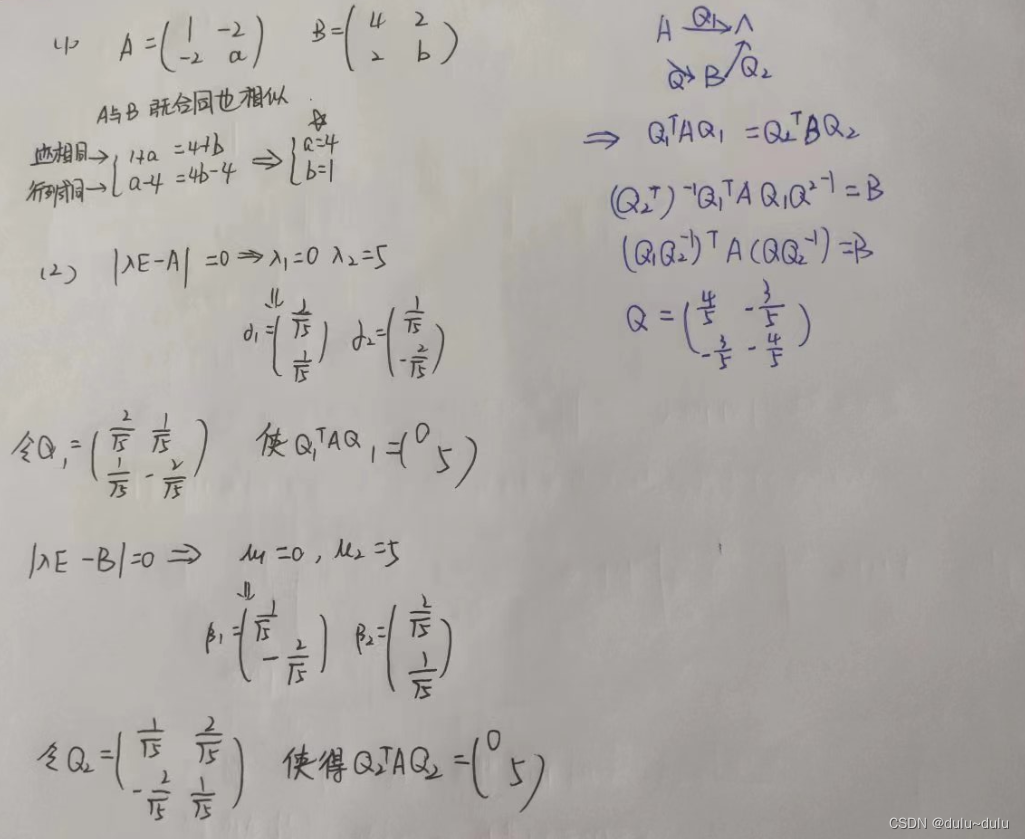 (1) A = (1 -2; -2 a) B = (4 2; 2 b)
A与B 既合同也相似
迹相同→ { 1+a = 4+b ⇒ { a=4
行列式同→ { a-4 = 4b-4 { b=1
(2) |λE-A| = 0 ⇒ λ₁=0 λ₂=5
⇓
α₁ = (2/√5; 1/√5) α₂ = (1/√5; -2/√5)
令Q₁ = (2/√5 1/√5; 1/√5 -2/√5) 使Q₁ᵀAQ₁ = (0 5)
|λE-B|=0 ⇒ μ₁=0, μ₂=5
⇓
β₁ = (1/√5; -2/√5) β₂ = (2/√5; 1/√5)
令Q₂ = (1/√5 2/√5; -2/√5 1/√5) 使得Q₂ᵀAQ₂ = (0 5)
A Q₁→ Λ
Q→ B ↗ Q₂
⇒ Q₁ᵀAQ₁ = Q₂ᵀBQ₂
(Q₂ᵀ)⁻¹Q₁ᵀA Q₁Q²⁻¹ = B
(Q₁Q₂⁻¹)ᵀ A (QQ₂⁻¹) = B
Q = (4/5 -3/5; -3/5 -4/5)
CSDN @dulu~dulu